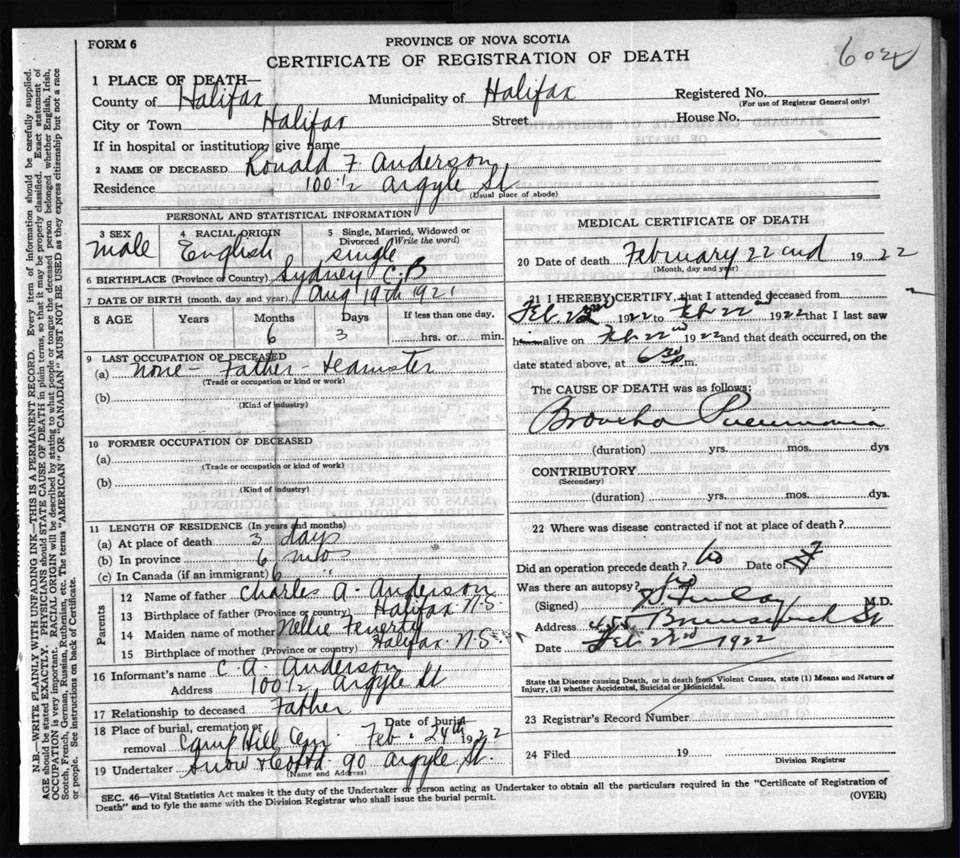 FORM 6
PROVINCE OF NOVA SCOTIA
CERTIFICATE OF REGISTRATION OF DEATH
1 PLACE OF DEATH—
County of Halifax Municipality of Halifax Registered No.
(For use of Registrar General only)
City or Town Halifax Street House No.
If in hospital or institution, give name
2 NAME OF DECEASED Ronald F. Anderson
Residence 100 1/2 Argyle St
(Usual place of abode)
PERSONAL AND STATISTICAL INFORMATION
3 SEX male
4 RACIAL ORIGIN English
5 Single, Married, Widowed or Divorced (Write the word) single
6 BIRTHPLACE (Province or Country) Sydney C.B
7 DATE OF BIRTH (month, day and year) Aug 19th 1921
8 AGE Years Months Days If less than one day,
6 3 hrs. or min.
9 LAST OCCUPATION OF DECEASED
(a) none - Father - teamster
(Trade or occupation or kind or work)
(b)
(Kind of industry)
10 FORMER OCCUPATION OF DECEASED
(a)
(Trade or occupation or kind of work)
(b)
(Kind of industry)
11 LENGTH OF RESIDENCE (In years and months)
(a) At place of death 3 days
(b) In province 6 mos
(c) In Canada (if an immigrant) 6 "
Parents
12 Name of father Charles A. Anderson
13 Birthplace of father (Province or country) Halifax N.S.
14 Maiden name of mother Nellie Fenerty
15 Birthplace of mother (Province or country) Halifax N.S.
16 Informant's name C A. Anderson
Address 100 1/2 Argyle St
17 Relationship to deceased Father
18 Place of burial, cremation or removal Camp Hill Cem. Date of burial Feb. 24th 1922
19 Undertaker Snow & Co 90 Argyle St.
(Name and Address)
MEDICAL CERTIFICATE OF DEATH
20 Date of death February 22nd 1922
(Month, day and year)
21 I HEREBY CERTIFY, that I attended deceased from
Feb. 1922 to Feb 22nd 1922 that I last saw
him alive on Feb 22nd 1922 and that death occurred, on the
date stated above, at 6 30 m.
The CAUSE OF DEATH was as follows:
Broncho Pneumonia
(duration) yrs. mos. dys
CONTRIBUTORY
(Secondary)
(duration) yrs. mos. dys.
22 Where was disease contracted if not at place of death?
Did an operation precede death? No Date of
Was there an autopsy? No
(Signed) M.D.
Address Brunswick St
Date Feb 22nd 1922
State the Disease causing Death, or in death from Violent Causes, state (1) Means and Nature of
Injury, (2) whether Accidental, Suicidal or Homicidal.
23 Registrar's Record Number
24 Filed 19
Division Registrar
SEC. 46—Vital Statistics Act makes it the duty of the Undertaker or person acting as Undertaker to obtain all the particulars required in the "Certificate of Registration of
Death" and to fyle the same with the Division Registrar who shall issue the burial permit. (OVER)
N.B.—WRITE PLAINLY WITH UNFADING INK—THIS IS A PERMANENT RECORD. Every item of information should be carefully supplied.
AGE should be stated EXACTLY. PHYSICIANS should STATE CAUSE OF DEATH in plain terms, so that it may be properly classified. Exact statement of
OCCUPATION is very important. RACIAL ORIGIN will be described by stating to what people or tongue the deceased person belonged whether English, Irish,
Scotch, French, German, Russian, Ruthenian, etc. The terms "AMERICAN" OR "CANADIAN" MUST NOT BE USED as they express citizenship but not a race
or people. See instructions on back of Certificate.